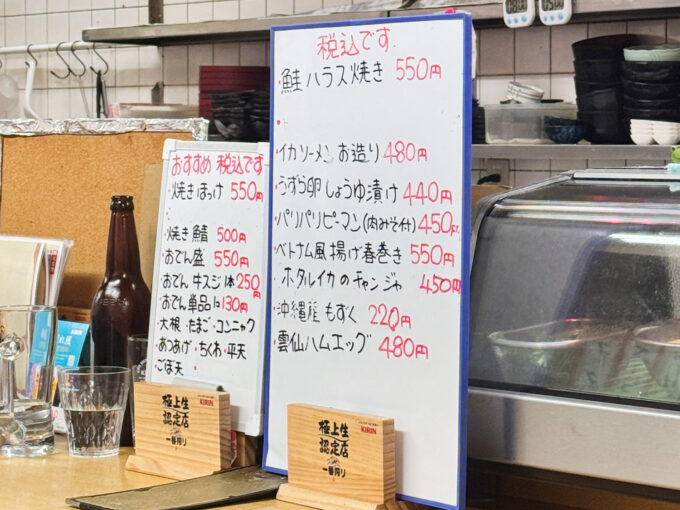 おすすめ 税込です
・焼きほっけ 550円
・焼き鯖 500円
・おでん盛 550円
・おでん 牛スジ1本 250円
・おでん単品1コ 130円
・大根・たまご・コニャク
・あつあげ・ちくわ・平天
・ごぼ天
極上生
認定店
一番搾り
KIRIN
税込です
・鮭ハラス焼き 550円
・イカソーメン お造り 480円
・うずら卵しょうゆ漬け 440円
・パリパリピーマン(肉みそ付) 450円
・ベトナム風揚げ春巻き 550円
ホタルイカのチャンジャ 450円
・沖縄産もずく 220円
・雲仙ハムエッグ 480円
極上生
認定店
一番搾り
KIRIN